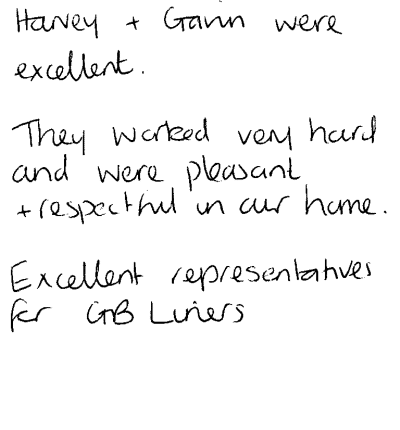 Harvey + Gavin were
excellent.
They worked very hard
and were pleasant
+ respectful in our home.
Excellent representatives
for GB Liners